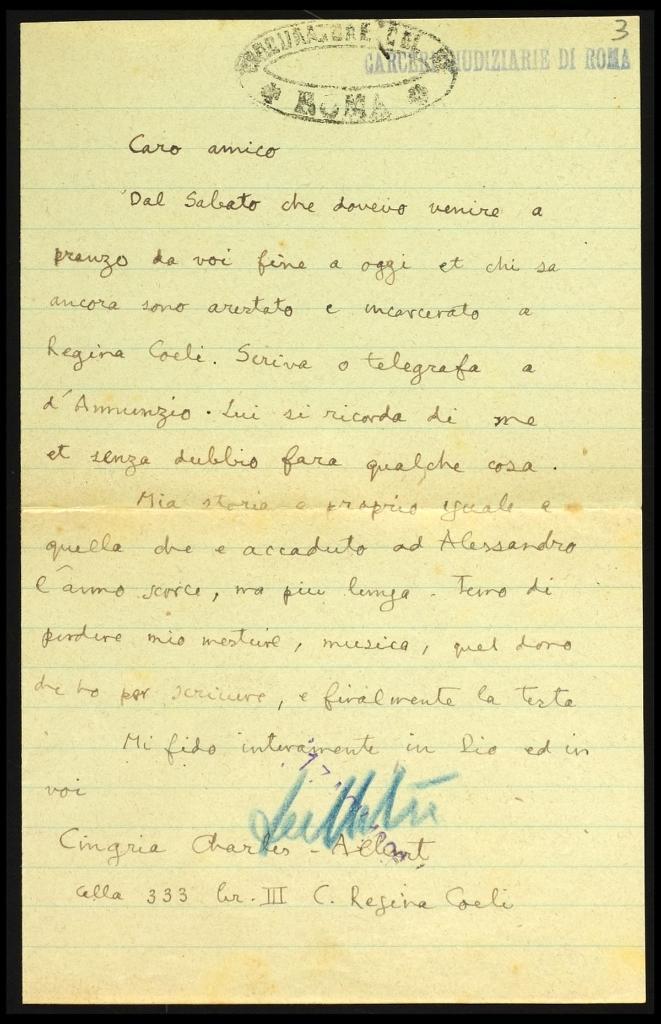 3
PROCURATORE DEL RE
ROMA
CARCERI GIUDIZIARIE DI ROMA
Caro amico
Dal Sabato che dovevo venire a
pranzo da voi fine a oggi et chi sa
ancora sono arestato e incarcerato a
Regina Coeli. Scriva o telegrafa a
d'Annunzio. Lui si ricorda di me
et senza dubbio fara qualche cosa.
Mia storia e proprio eguale a
quella che e accaduto ad Alessandro
l'anno scorce, ma piu lunga. Temo di
perdere mio mestiere, musica, quel dono
che ho per scrivere, e finalmente la testa
Mi fido interamente in Dio ed in
voi
Cingria Charles-Albert
cella 333 br. III C. Regina Coeli